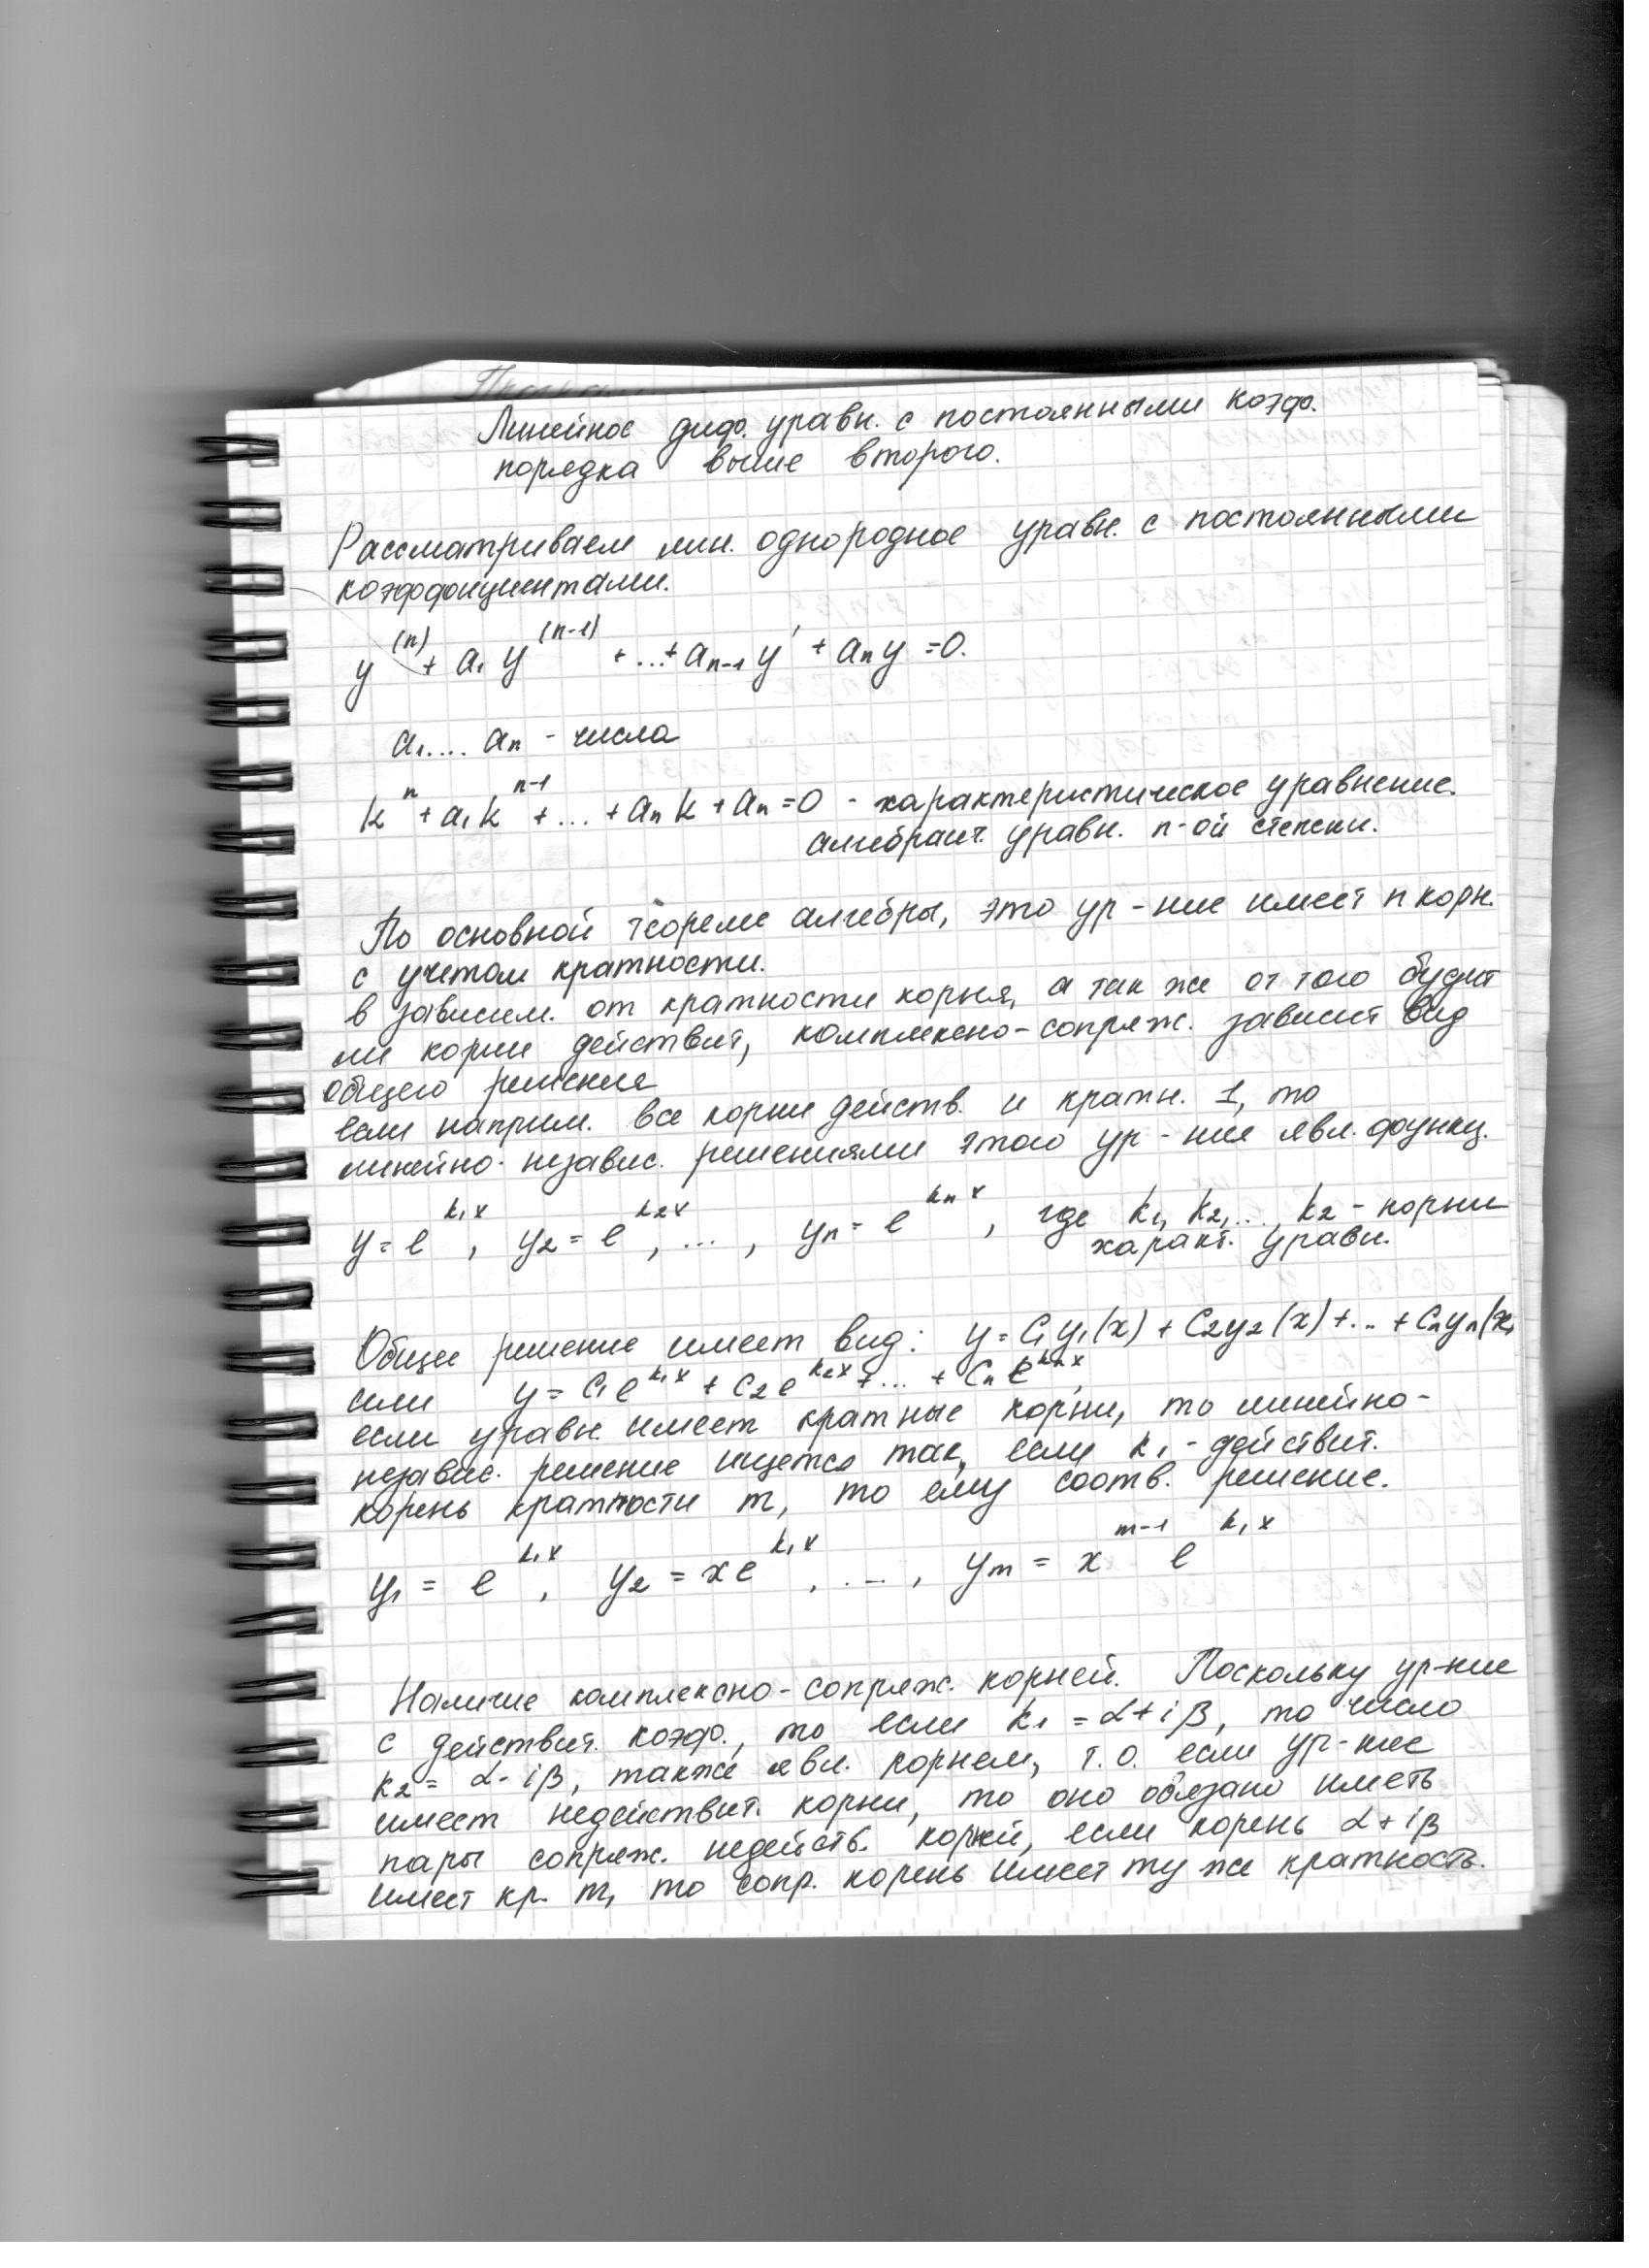 Линейное диф. уравн. с постоянными коэф.
порядка выше второго.
Рассматриваем лин. однородное уравн. с постоянными
коэффициентами.
y^(n) + a₁ y^(n-1) + ...+ aₙ₋₁ y' + aₙ y = 0.
a₁.... aₙ - числа
k^n + a₁k^n-1 + ... + aₙ k + aₙ = 0 - характеристическое уравнение.
алгебраич. уравн. n-ой степени.
По основной теореме алгебры, это ур-ние имеет n корн.
с учетом кратности.
в зависим. от кратности корня, а так же от того будут
ли корни действит, комплексно-сопряж. зависит вид
общего решения
если наприм. все корни действ. и кратн. 1, то
линейно-независ. решениями этого ур-ния явл. функц.
y = e^k₁x , y₂ = e^k₂x , ... , yₙ = e^kₙx , где k₁, k₂,..., k₂ - корни
характ. уравн.
Общее решение имеет вид: y = C₁y₁(x) + C₂y₂(x) + .. + Cₙyₙ(x)
или y = C₁e^k₁x + C₂e^k₂x + ... + Cₙe^kₙx,
если уравн. имеет кратные корни, то линейно-
независ. решение ищется так, если k₁ - действит.
корень кратности m, то ему соотв. решение.
y₁ = e^k₁x , y₂ = xe^k₁x , ... , yₘ = x^m-1 e^k₁x
Наличие комплексно-сопряж. корней. Поскольку ур-ние
с действит. коэф., то если k₁ = α + iβ, то число
k₂ = α - iβ, также явл. корнем, т.о. если ур-ние
имеет недействит. корни, то оно обязано иметь
пары сопряж. недейств. корней, если корень α + iβ
имеет кр. m, то сопр. корень имеет ту же кратность.